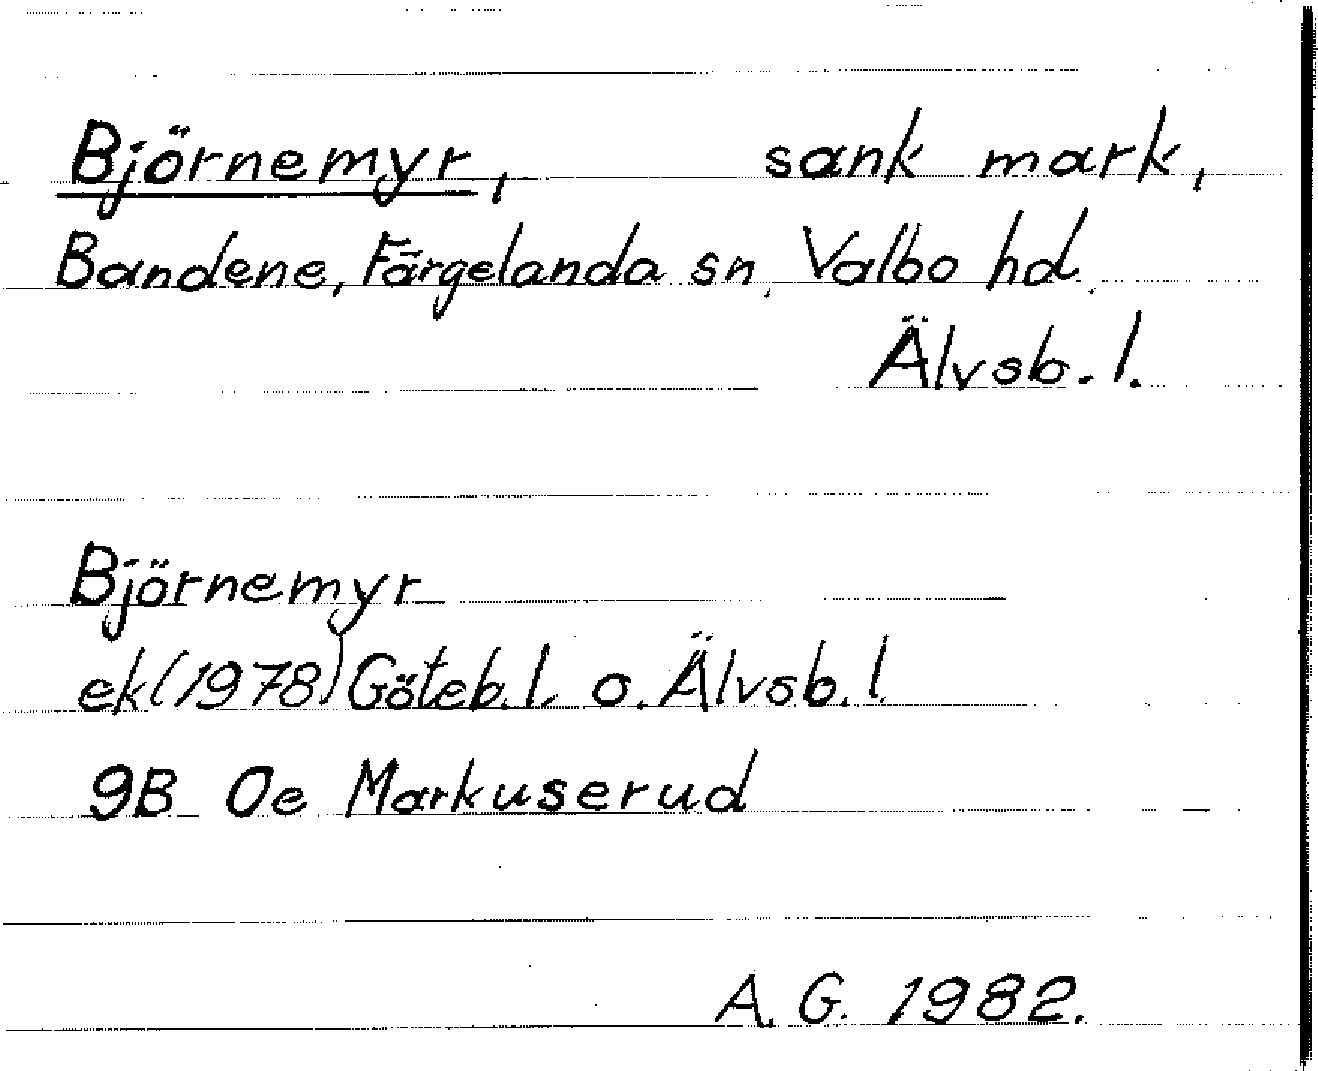 Björnemyr, sank mark,
Bandene, Färgelanda sn, Valbo hd.
Älvsb. l.
Björnemyr
ek (1978) Göteb. l. o. Älvsb. l.
9B Oe Markuserud
A. G. 1982.